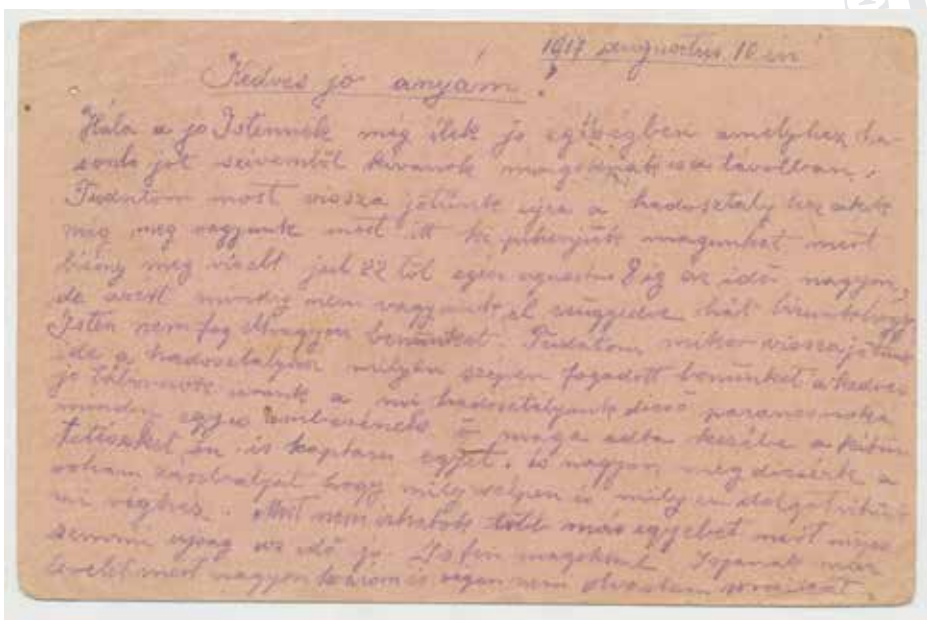 1917 augusztus 10 én
Kedves jo anyám!
Hála a jo Istennek még élek jo egésségben amelyhez ha-
sonlo jót szivemböl kivánok a távolban.
Tudatom most vissza jöttünk ujra a hadosztály hoz akik
még meg vagyunk most itt ki pihenjük magunkat mert
bizony meg viselt jul 22 töl egész 8 ig az idö nagyon,
de azért mindig nem vagyunk el csüggedve hát bizunk hogy
Isten nem fog elhagyni benünket. Tudatom mikor vissza jötünk
ide a hadosztályhoz milyen szépen fogadott benünket a kedves
jo tábornok urunk a mi hadosztályunk dicsö parancsnoka
minden egyes emberének ö maga adta kezébe a kitün
tetéseket én is kaptam egyet. és nagyon meg dicsérte a
roham zászloalját hogy mily szépen is mily dolgot
mi véghez. nem irhatok több más egyebet mert nincs
semmi ujság az idö jo Isten magokkal már
levelet mert nagyon várom és régen nem olvastam